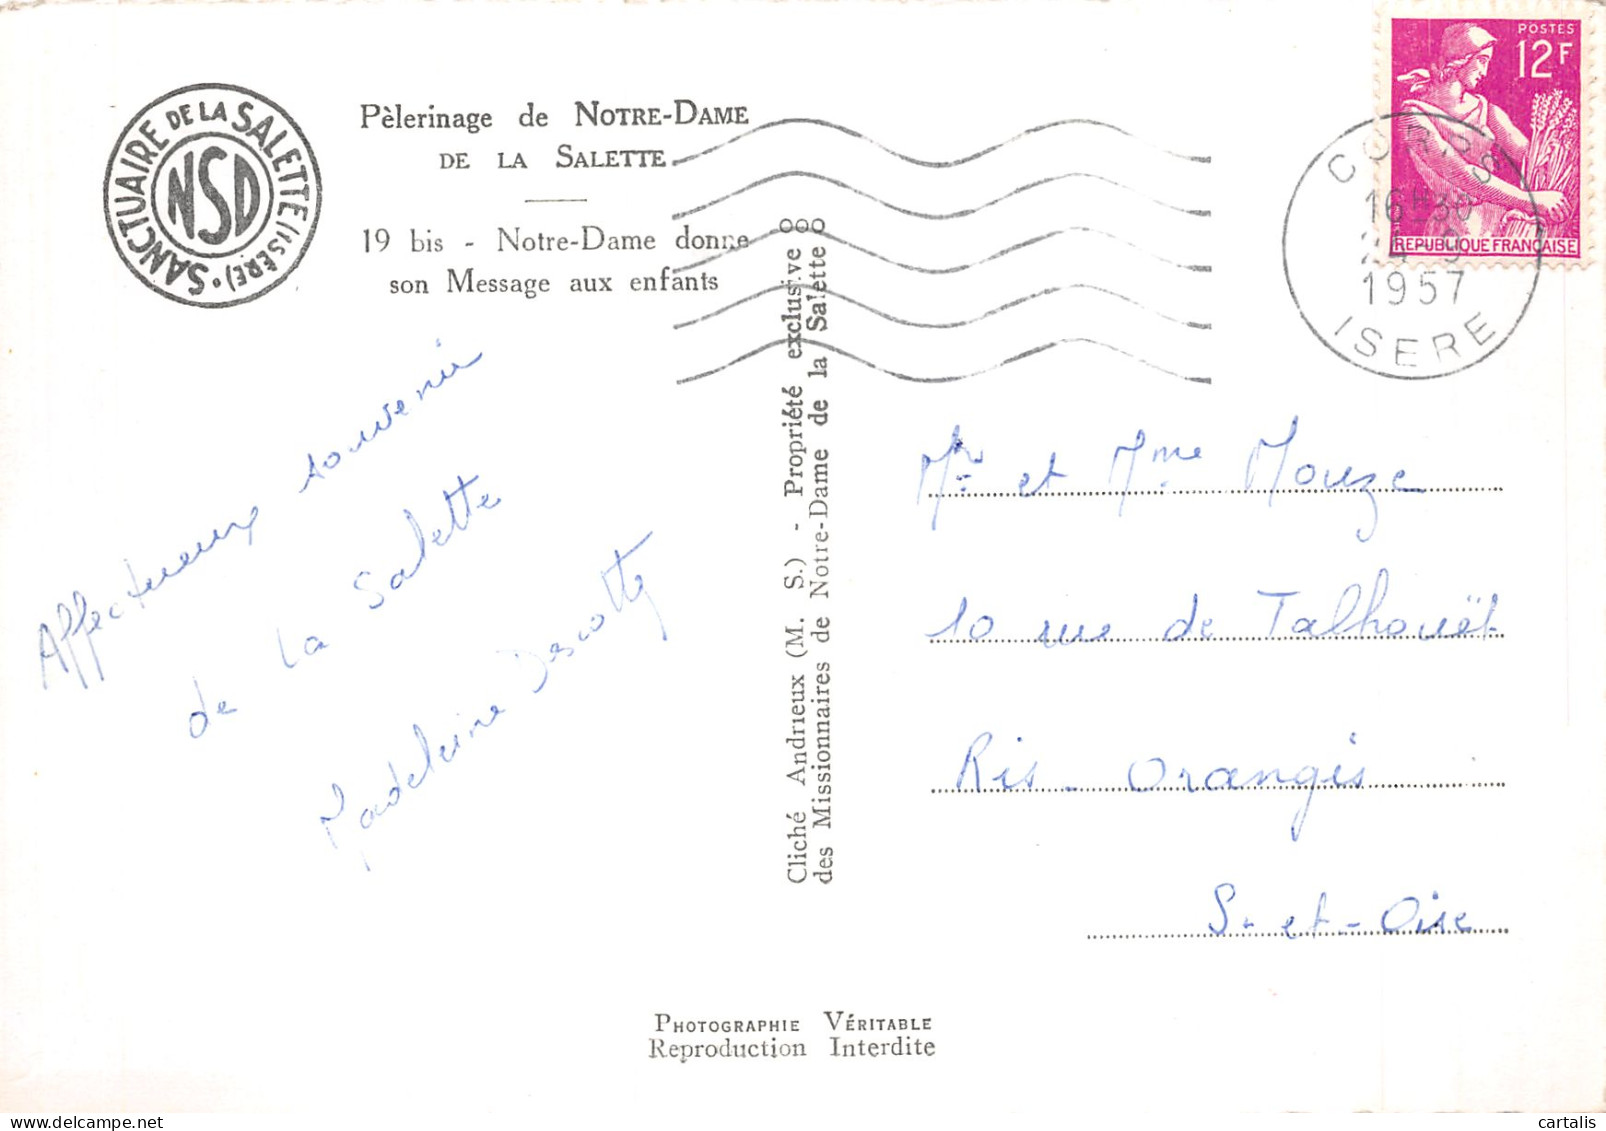 SANCTUAIRE DE LA SALETTE (ISÈRE).
NSD
Pèlerinage de NOTRE-DAME
DE LA SALETTE
19 bis - Notre-Dame donne
son Message aux enfants
POSTES
12F
REPUBLIQUE FRANÇAISE
CORPS
16H30
1957
ISERE
Affectueux souvenir
de La Salette
Madeleine Descotty
Cliché Andrieux (M. S.) - Propriété exclusive
des Missionnaires de Notre-Dame de la Salette
Mr et Mme Mouze
10 rue de Talhouët
Ris-Orangis
S-et-Oise
PHOTOGRAPHIE VÉRITABLE
Reproduction Interdite
cartalis